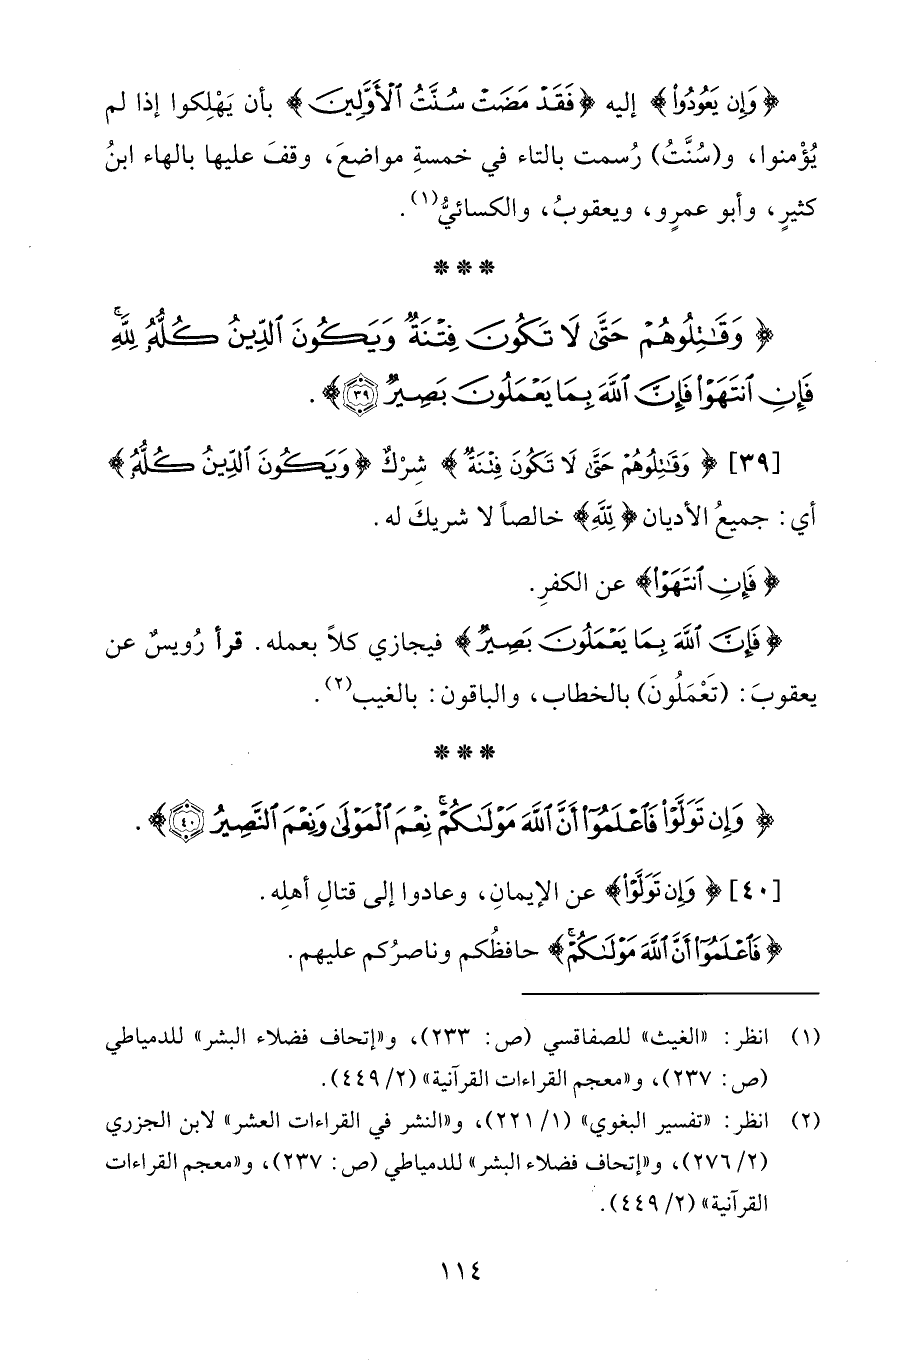 ﴿وَإِن يَعُودُوا﴾ إليه ﴿فَقَدْ مَضَتْ سُنَّتُ ٱلْأَوَّلِينَ﴾ بأن يَهْلِكوا إذا لم
يُؤْمنوا، و(سُنَّتُ) رُسمت بالتاء في خمسةِ مواضعَ، وقفَ عليها بالهاء ابنُ
كثيرٍ، وأبو عمرٍو، ويعقوبُ، والكسائيُّ(١).
* * *
﴿وَقَـٰتِلُوهُمْ حَتَّىٰ لَا تَكُونَ فِتْنَةٌ وَيَكُونَ ٱلدِّينُ كُلُّهُۥ لِلَّهِۚ
فَإِنِ ٱنتَهَوْا۟ فَإِنَّ ٱللَّهَ بِمَا يَعْمَلُونَ بَصِيرٌ ٣٩﴾.
[٣٩] ﴿وَقَـٰتِلُوهُمْ حَتَّىٰ لَا تَكُونَ فِتْنَةٌ﴾ شِرْكٌ ﴿وَيَكُونَ ٱلدِّينُ كُلُّهُۥ﴾
أي: جميعُ الأديان ﴿لِلَّهِ﴾ خالصاً لا شريكَ له.
﴿فَإِنِ ٱنتَهَوْا۟﴾ عن الكفرِ.
﴿فَإِنَّ ٱللَّهَ بِمَا يَعْمَلُونَ بَصِيرٌ﴾ فيجازي كلاً بعمله. قرأ رُويسٌ عن
يعقوبَ: (تَعْمَلُونَ) بالخطاب، والباقون: بالغيب(٢).
* * *
﴿وَإِن تَوَلَّوْا۟ فَٱعْلَمُوٓا۟ أَنَّ ٱللَّهَ مَوْلَىٰكُمْۚ نِعْمَ ٱلْمَوْلَىٰ وَنِعْمَ ٱلنَّصِيرُ ٤٠﴾.
[٤٠] ﴿وَإِن تَوَلَّوْا۟﴾ عن الإيمانِ، وعادوا إلى قتالِ أهلِه.
﴿فَٱعْلَمُوٓا۟ أَنَّ ٱللَّهَ مَوْلَىٰكُمْۚ﴾ حافظُكم وناصرُكم عليهم.
(١) انظر: «الغيث» للصفاقسي (ص: ٢٣٣)، و«إتحاف فضلاء البشر» للدمياطي
(ص: ٢٣٧)، و«معجم القراءات القرآنية» (٢/ ٤٤٩).
(٢) انظر: «تفسير البغوي» (١/ ٢٢١)، و«النشر في القراءات العشر» لابن الجزري
(٢/ ٢٧٦)، و«إتحاف فضلاء البشر» للدمياطي (ص: ٢٣٧)، و«معجم القراءات
القرآنية» (٢/ ٤٤٩).
١١٤